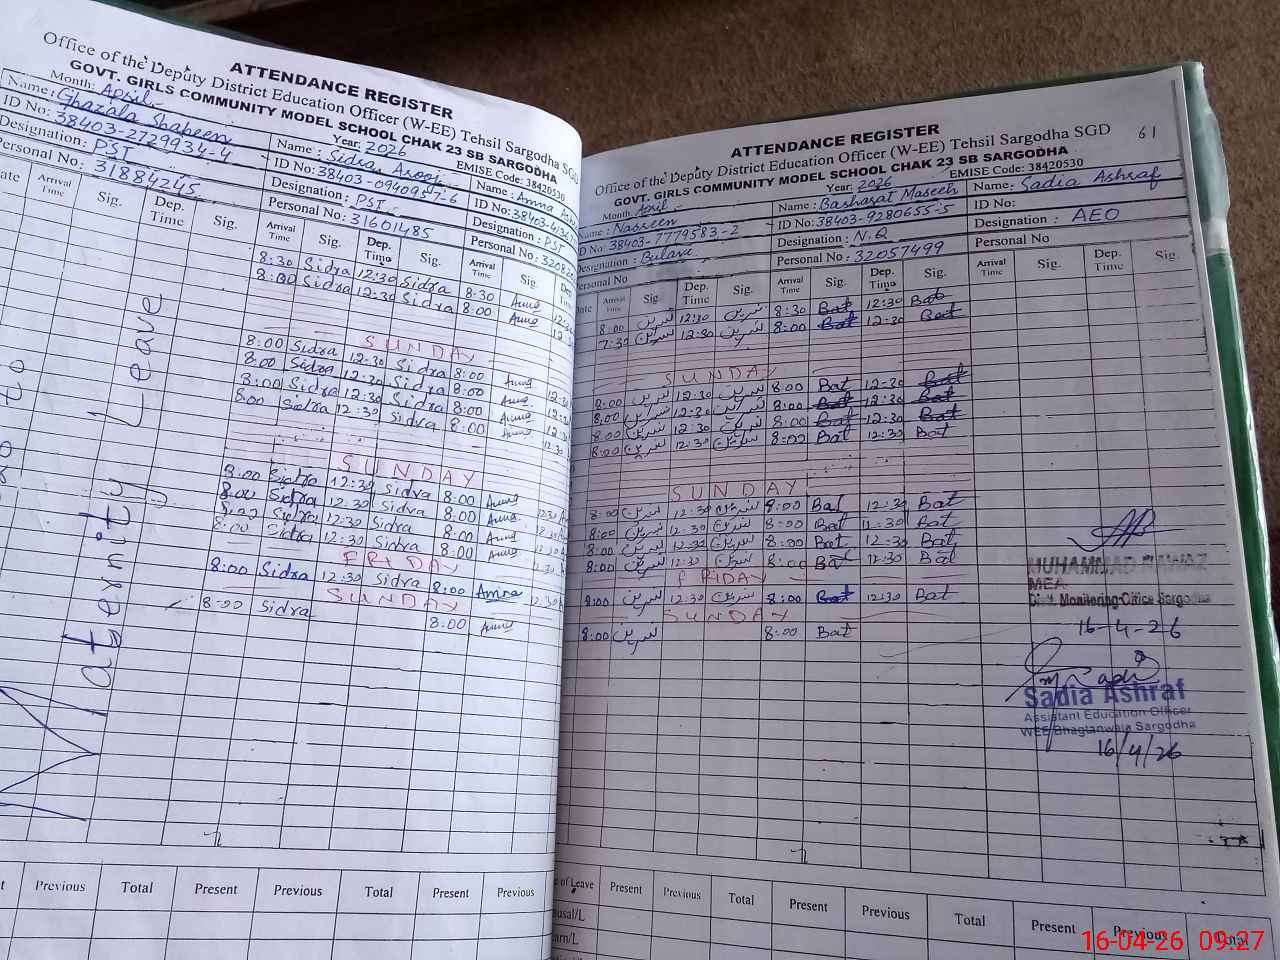 ATTENDANCE REGISTER
Office of the Deputy District Education Officer (W-EE) Tehsil Sargodha SGD
GOVT. GIRLS COMMUNITY MODEL SCHOOL CHAK 23 SB SARGODHA
Month: April Year: 2026 EMISE Code: 38420530
Name: Ghazala Shaheen Name: Sidra Arooj Name: Amna
ID No: 38403-2729934-4 ID No: 38403-0940957-6 ID No:
Designation: PST Designation: PST Designation: PST
Personal No: 31884245 Personal No: 31601485 Personal No:
Arrival Time Sig. Dep. Time Sig. Arrival Time Sig. Dep. Time Sig. Arrival Time Sig.
8:30 Sidra 12:30 Sidra 8:30 Amna
8:00 Sidra 12:30 Sidra 8:00 Amna
SUNDAY
8:00 Sidra 12:30 Sidra 8:00 Amna
8:00 Sidra 12:30 Sidra 8:00 Amna
8:00 Sidra 12:30 Sidra 8:00 Amna
8:00 Sidra 12:30 Sidra 8:00 Amna 12:30
SUNDAY
8:00 Sidra 12:30 Sidra 8:00 Amna 12:30
8:00 Sidra 12:30 Sidra 8:00 Amna 12:30
8:00 Sidra 12:30 Sidra 8:00 Amna 12:30
8:00 Sidra 12:30 Sidra 8:00 Amna 12:30
FRIDAY
8:00 Sidra 12:30 Sidra 8:00 Amna 12:30
SUNDAY
8:00 Sidra 8:00 Amna
Maternity Leave
Previous Total Present Previous Total Present Previous
ATTENDANCE REGISTER 61
Office of the Deputy District Education Officer (W-EE) Tehsil Sargodha SGD
GOVT. GIRLS COMMUNITY MODEL SCHOOL CHAK 23 SB SARGODHA
Month April Year: 2026 EMISE Code: 38420530
Name: Nasreen Name: Basharat Maseeh Name: Sadia Ashraf
ID No: 38403-7779583-2 ID No: 38403-9280655-5 ID No:
Designation: Designation: N.Q Designation: AEO
Personal No Personal No: 32057499 Personal No
Arrival Time Sig. Dep. Time Sig. Arrival Time Sig. Dep. Time Sig. Arrival Time Sig. Dep. Time Sig.
8:00 نسرین 12:30 نسرین 8:30 Bat 12:30 Bat
7:30 نسرین 12:30 نسرین 8:00 Bat 12:30 Bat
SUNDAY
8:00 نسرین 12:30 نسرین 8:00 Bat 12:30 Bat
8:00 نسرین 12:30 نسرین 8:00 Bat 12:30 Bat
8:00 نسرین 12:30 نسرین 8:00 Bat 12:30 Bat
8:00 نسرین 12:30 نسرین 8:00 Bat 12:30 Bat
SUNDAY
8:00 نسرین 12:30 نسرین 8:00 Bat 12:30 Bat
8:00 نسرین 12:30 نسرین 8:00 Bat 12:30 Bat
8:00 نسرین 12:30 نسرین 8:00 Bat 12:30 Bat
8:00 نسرین 12:30 نسرین 8:00 Bat 12:30 Bat
FRIDAY
8:00 نسرین 12:30 نسرین 8:00 Bat 12:30 Bat
SUNDAY
8:00 نسرین 8:00 Bat
MUHAMMAD NAWAZ
MEA
Distt. Monitoring Office Sargodha
16-4-26
Sadia Ashraf
Assistant Education Officer
WEE Bhagtanwala Sargodha
16/4/26
of Leave Present Previous Total Present Previous Total Present Previous Total
16-04-26 09:27